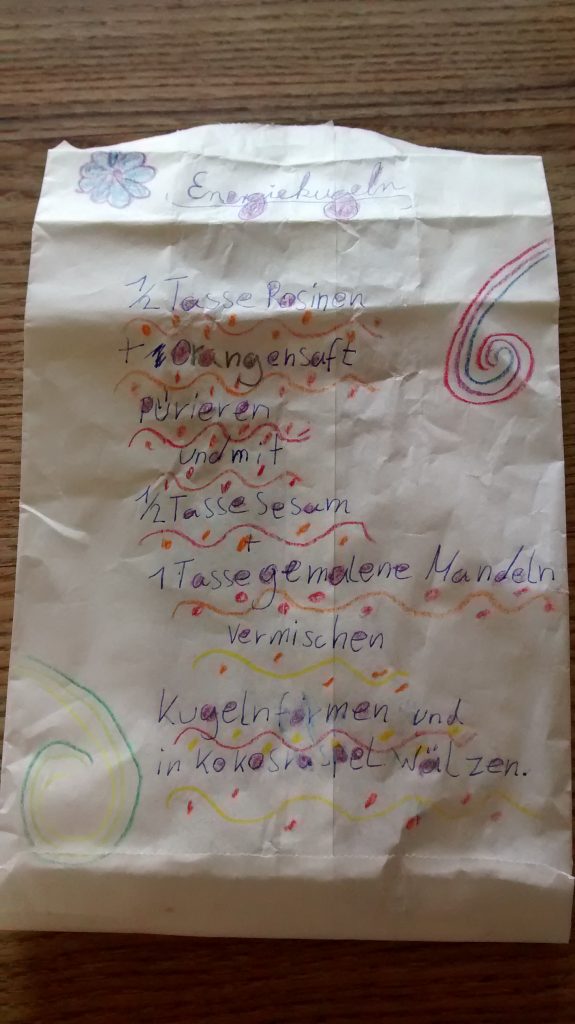 Energiekugeln
1/2 Tasse Rosinen
+ 1 Orangensaft
pürieren
und mit
1/2 Tasse Sesam
+
1 Tasse gemalene Mandeln
vermischen
Kugeln formen und
in Kokosraspel wälzen.